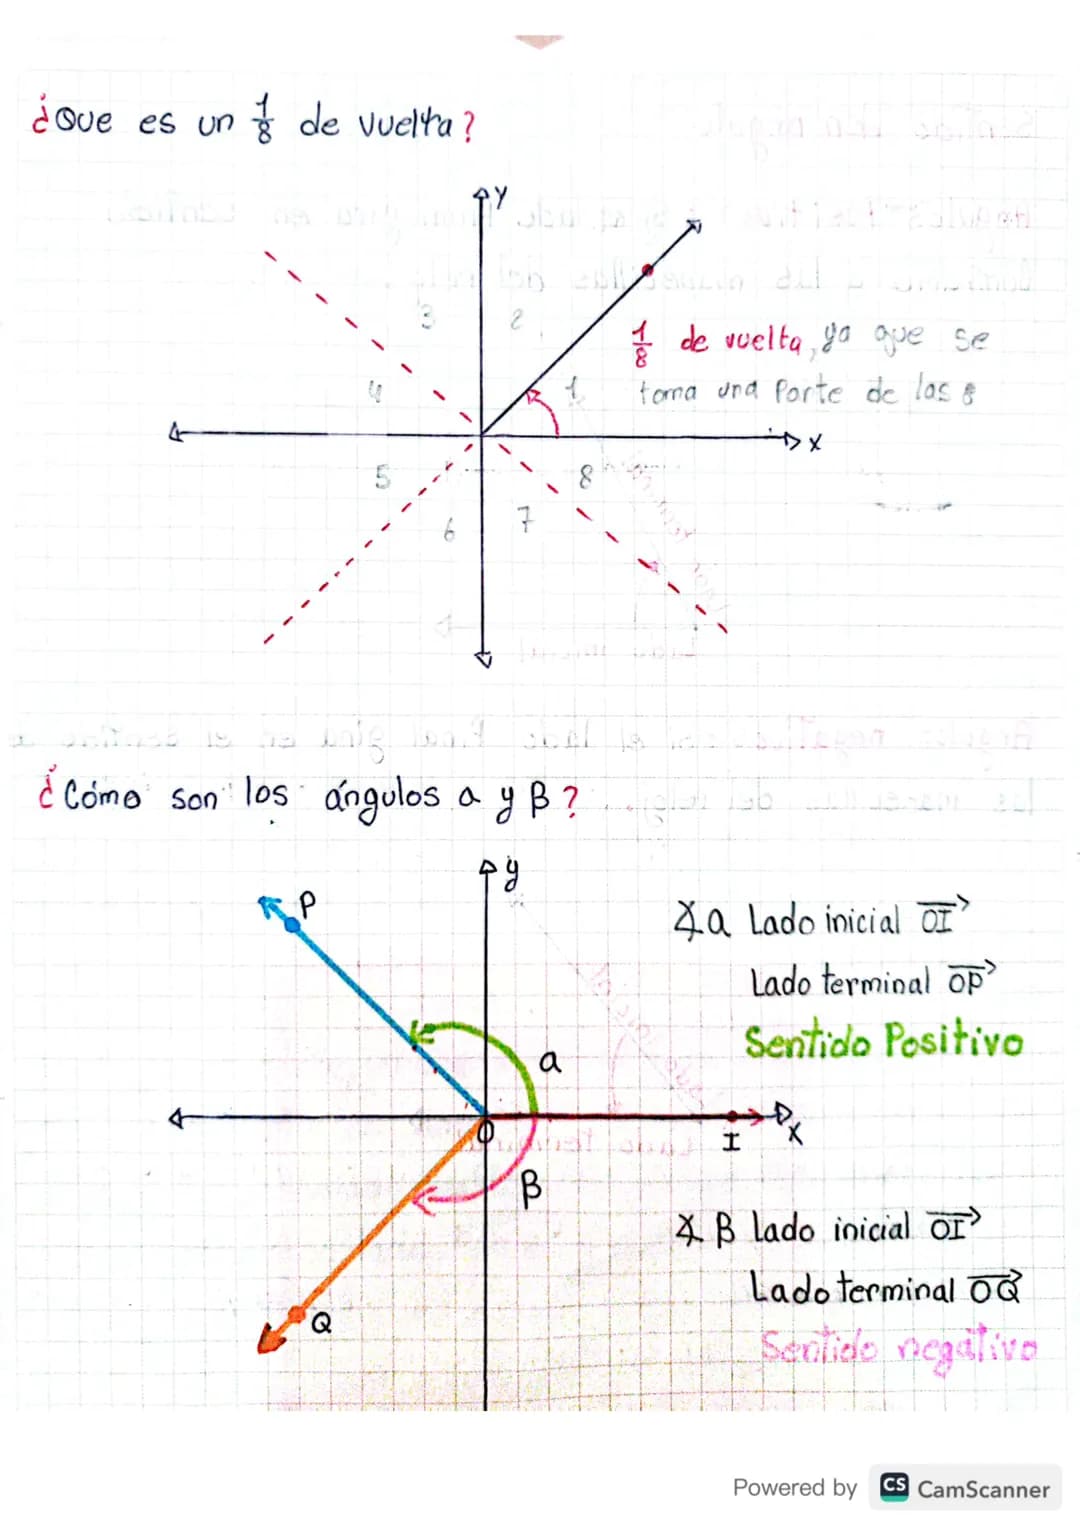 ¿Que es un 1/8 de vuelta?
Y
3 2
1/8 de vuelta, ya que se
4 1 toma una Parte de las 8
X
5 8
6 7
¿Cómo son los ángulos a y β?
y
P
∡a Lado inicial OI
Lado terminal OP
Sentido Positivo
a
O I X
β
∡β lado inicial OI
Lado terminal OQ
Q
Sentido negativo
Powered by CS CamScanner